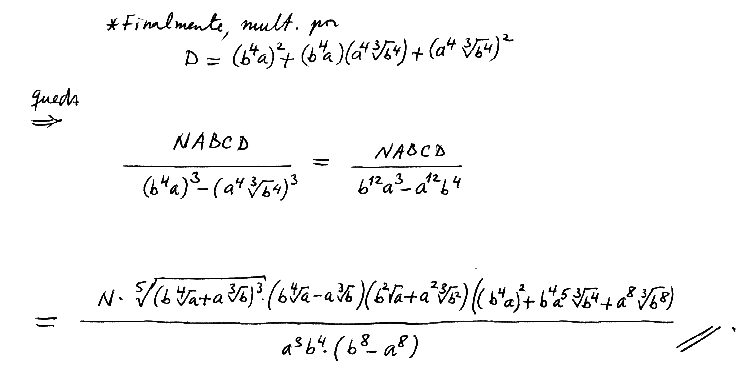 *Finalmente, mult. por
D = (b⁴a)² + (b⁴a)(a⁴ ∛b⁴) + (a⁴ ∛b⁴)²
queda
⇒
NABCD / ((b⁴a)³ - (a⁴ ∛b⁴)³) = NABCD / (b¹²a³ - a¹²b⁴)
= N · ⁵√(b ∜a + a ∛b)³ · (b ∜a - a ∛b)(b²√a + a² ∛b²)((b⁴a)² + b⁴a⁵ ∛b⁴ + a⁸ ∛b⁸) / (a³b⁴ · (b⁸ - a⁸)) //.